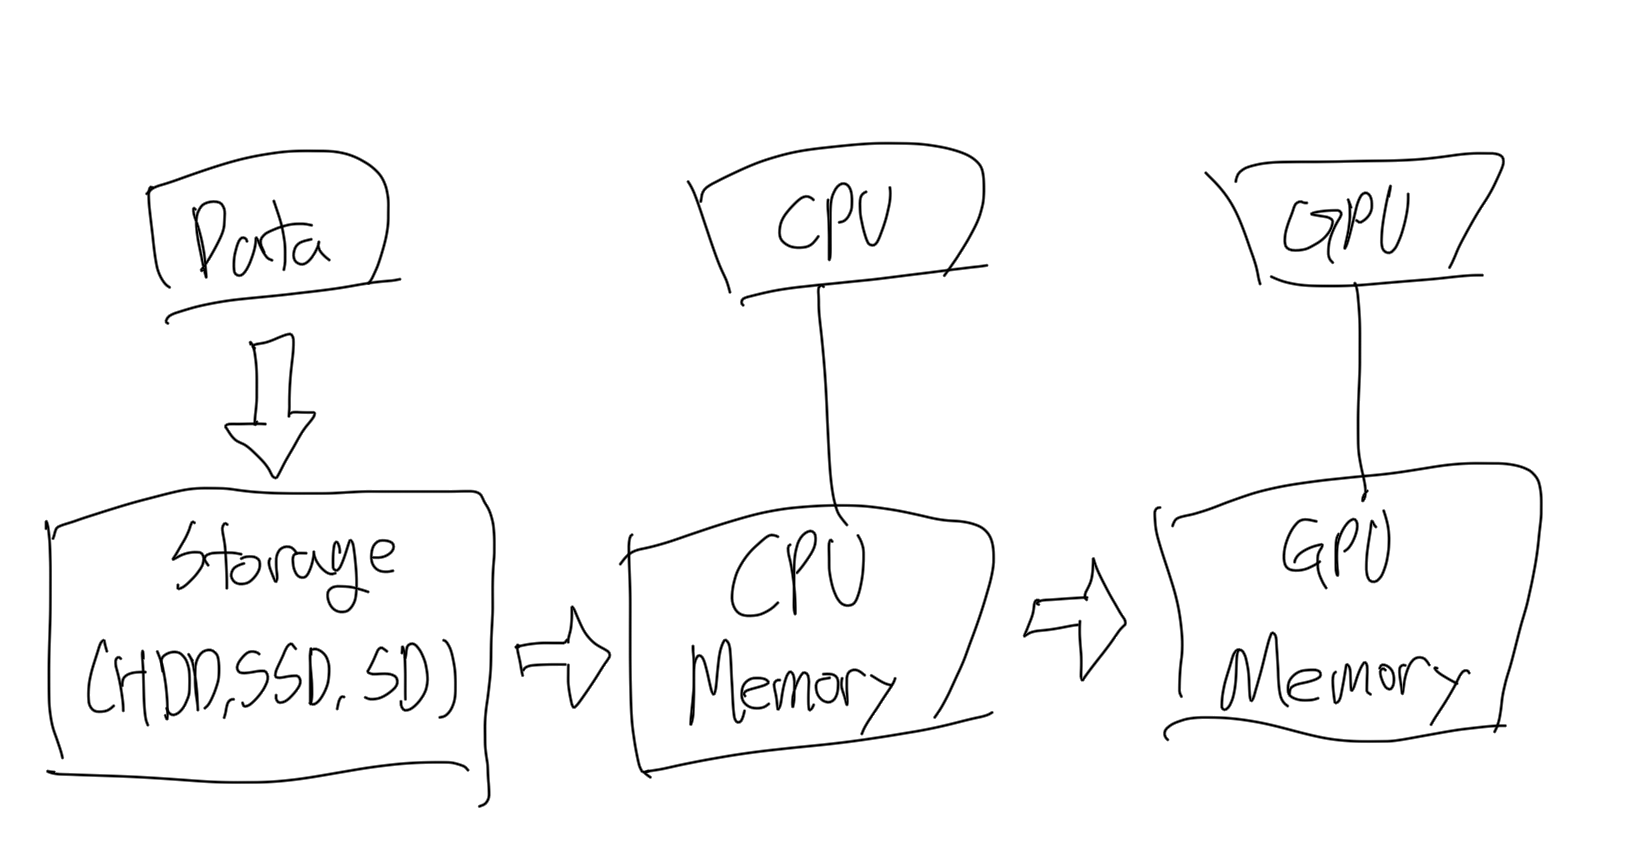 Data
CPU
GPU
Storage
(HDD, SSD, SD)
CPU
Memory
GPU
Memory